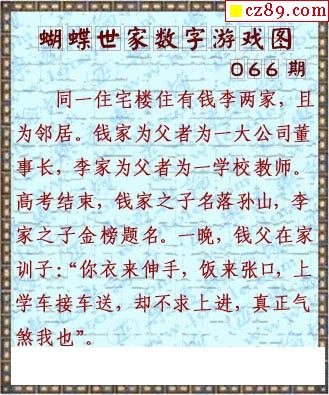 cz89.com
蝴蝶世家数字游戏图
066 期
同一住宅楼住有钱李两家，且
为邻居。钱家为父者为一大公司董
事长，李家为父者为一学校教师。
高考结束，钱家之子名落孙山，李
家之子金榜题名。一晚，钱父在家
训子：“你衣来伸手，饭来张口，上
学车接车送，却不求上进，真正气
煞我也”。